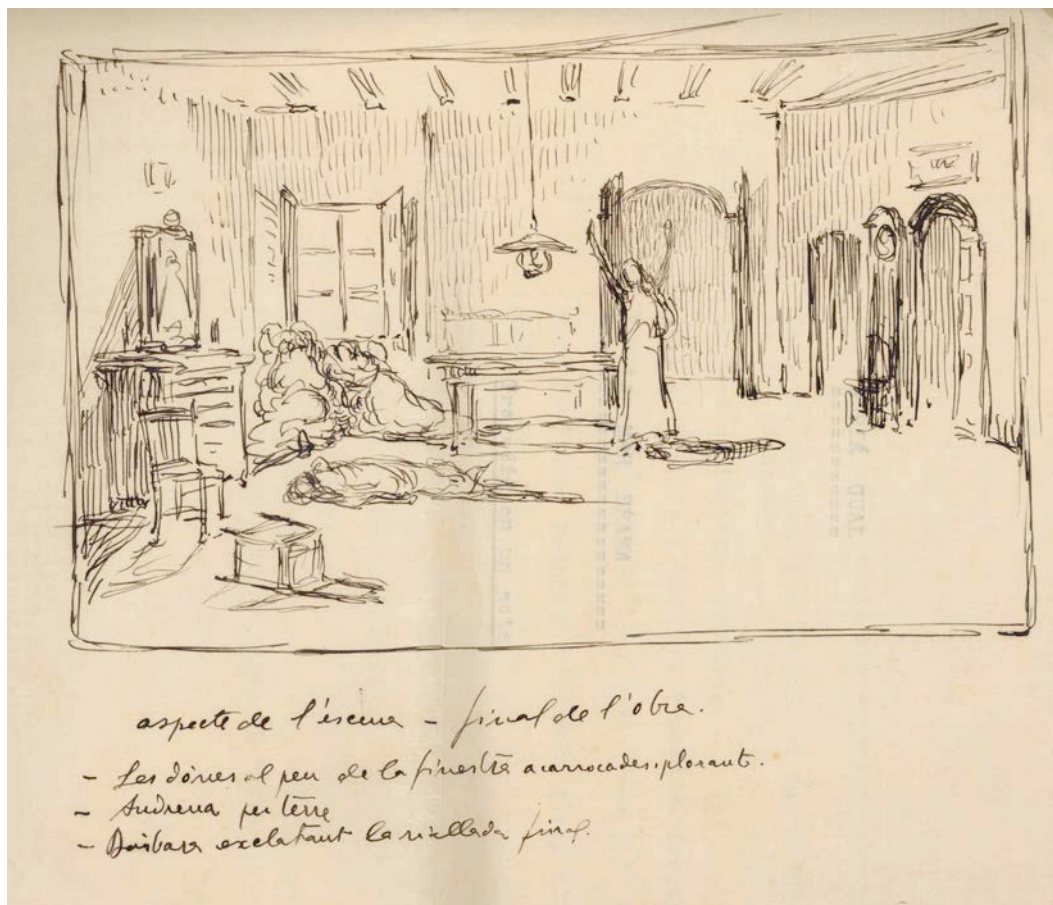 aspecte de l'escena - final de l'obra.
- Les dònes al peu de la finestra acarrocades, plorant.
- Andrena per terre
- Barbara esclatant la riallada final.